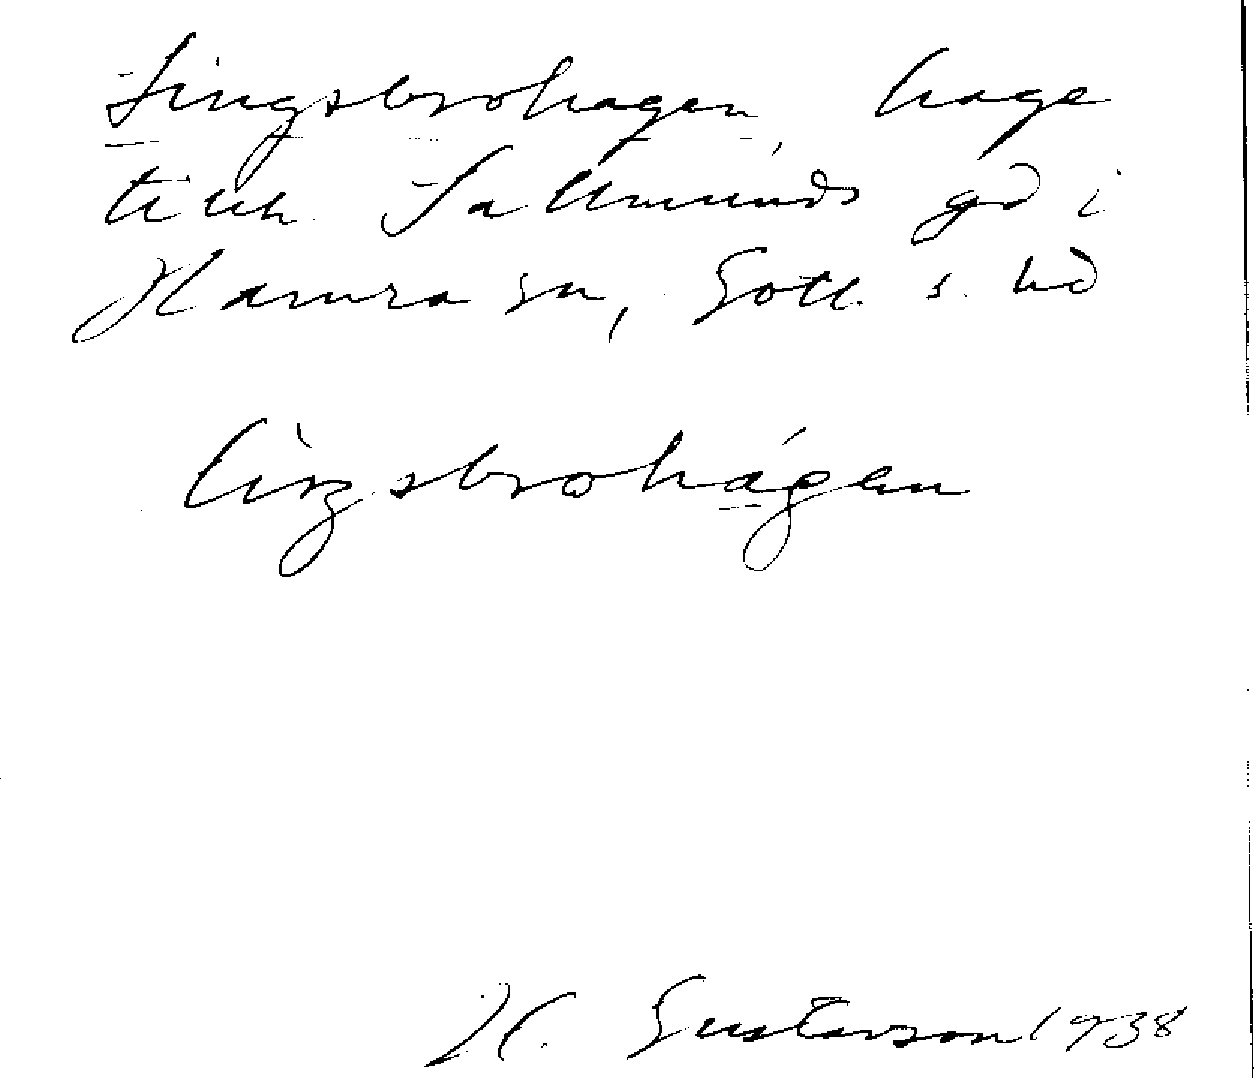 Tingsbrohagen, hage
tillh. Sallmunds gd i
Hamra sn, Gotl. s. hd
tiŋsbrohágen
H. Gustavson 1938